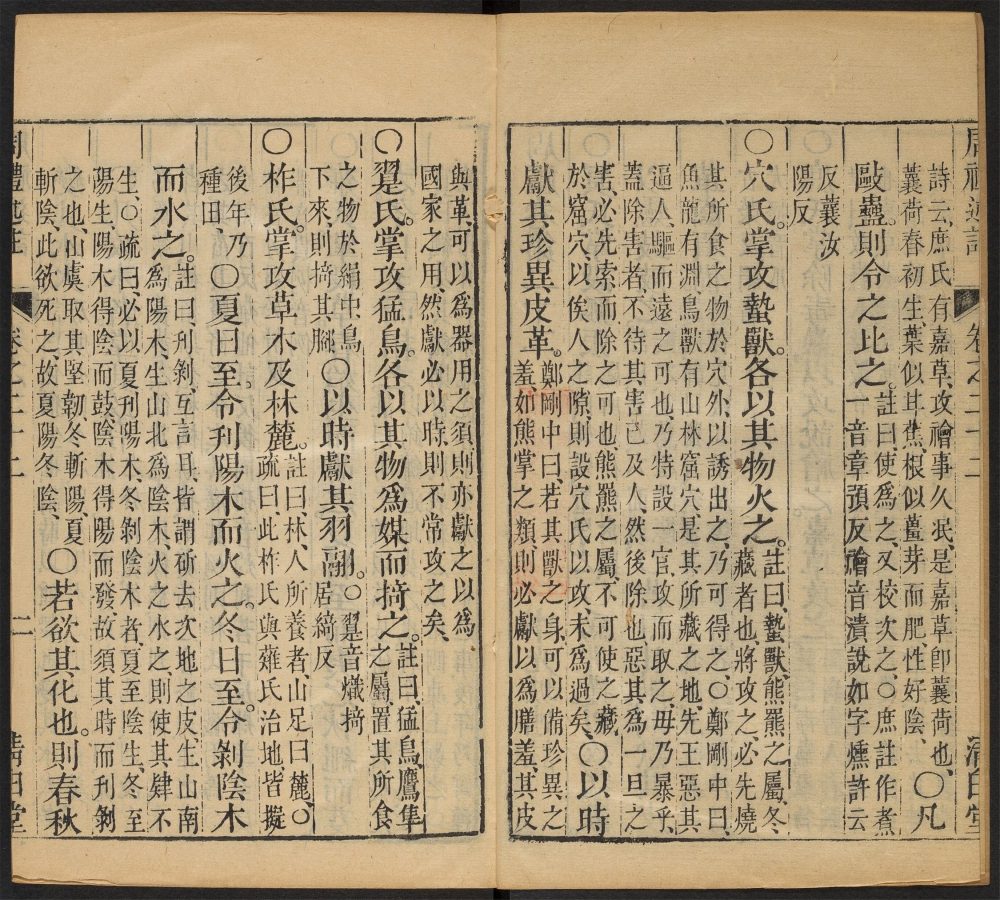 周禮述註 卷之二十二 清白堂
詩云庶氏有嘉草攻禬事久泯是嘉草卽蘘荷也
蘘荷春初生葉似甘蕉根似薑芽而肥性好陰〇凡
敺蠱則令之比之註曰使爲之又校次之〇庶註作煮
音章預反禬音潰說如字燻許云
反蘘汝
陽反
〇穴氏掌攻蟄獸各以其物火之註曰蟄獸熊羆之屬冬
藏者也將攻之必先燒
其所食之物於穴外以誘出之乃可得之〇鄭剛中曰
魚龍有淵鳥獸有山林窟穴是其所藏之地先王惡其
逼人驅而遠之可也乃特設一官攻而取之毋乃暴乎
蓋除害者不待其害已及人然後除也惡其爲一旦之
害必先索而除之可也熊羆之屬不可使之藏
於窟穴以俟人之隙則設穴氏以攻未爲過矣〇以時
獻其珍異皮革鄭剛中曰若其獸之身可以備珍異之
羞如熊掌之類則必獻以爲膳羞其皮
與革可以爲器用之須則亦獻之以爲
國家之用然獻必以時則不常攻之矣
〇翨氏掌攻猛鳥各以其物爲媒而掎之註曰猛鳥鷹隼
之屬置其所食
之物於絹中鳥
下來則掎其腳〇以時獻其羽翮〇翨音熾掎
居綺反
〇柞氏掌攻草木及林麓註曰林人所養者山足曰麓〇
疏曰此柞氏與薙氏治地皆擬
後年乃
種田〇夏日至令刋陽木而火之冬日至令剝陰木
而水之註曰刋剝互言耳皆謂斫去次地之皮生山南
爲陽木生山北爲陰木火之水之則使其肄不
生〇疏曰必以夏刋陽木冬剝陰木者夏至陰生冬至
陽生陽木得陰而鼓陰木得陽而發故須其時而刋剝
之也山虞取其堅韌冬斬陽夏
斬陰此欲死之故夏陽冬陰〇若欲其化也則春秋
周禮述註 卷之二十二 二 清白堂